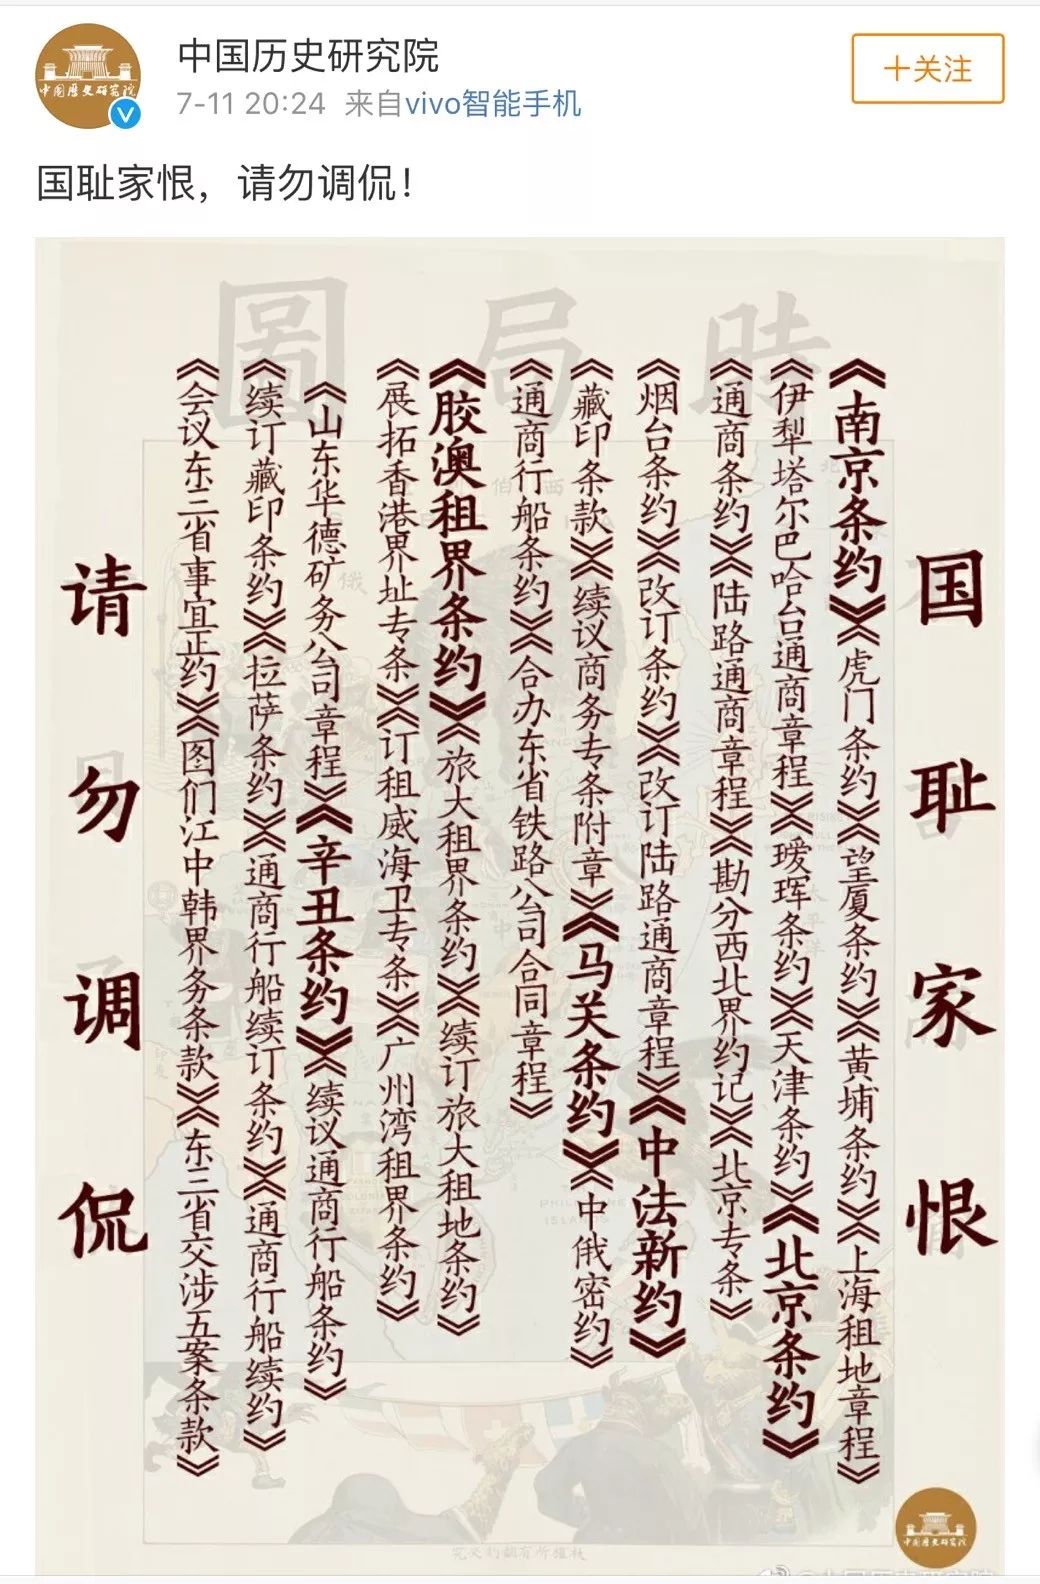 中国历史研究院
7-11 20:24 来自vivo智能手机
+关注
国耻家恨，请勿调侃！
時局圖
国耻家恨
《南京条约》《虎门条约》《望厦条约》《黄埔条约》《上海租地章程》
《伊犁塔尔巴哈台通商章程》《瑷珲条约》《天津条约》《北京条约》
《通商条约》《陆路通商章程》《勘分西北界约记》《北京专条》
《烟台条约》《改订条约》《改订陆路通商章程》《中法新约》
《藏印条款》《续议商务专条附章》《马关条约》《中俄密约》
《通商行船条约》《合办东省铁路公司合同章程》
《胶澳租界条约》《旅大租界条约》《续订旅大租地条约》
《展拓香港界址专条》《订租威海卫专条》《广州湾租界条约》
《山东华德矿务公司章程》《辛丑条约》《续议通商行船条约》
《续订藏印条约》《拉萨条约》《通商行船续订条约》《通商行船续约》
《会议东三省事宜正约》《图们江中韩界务条款》《东三省交涉五案条款》
请勿调侃
中国历史研究院